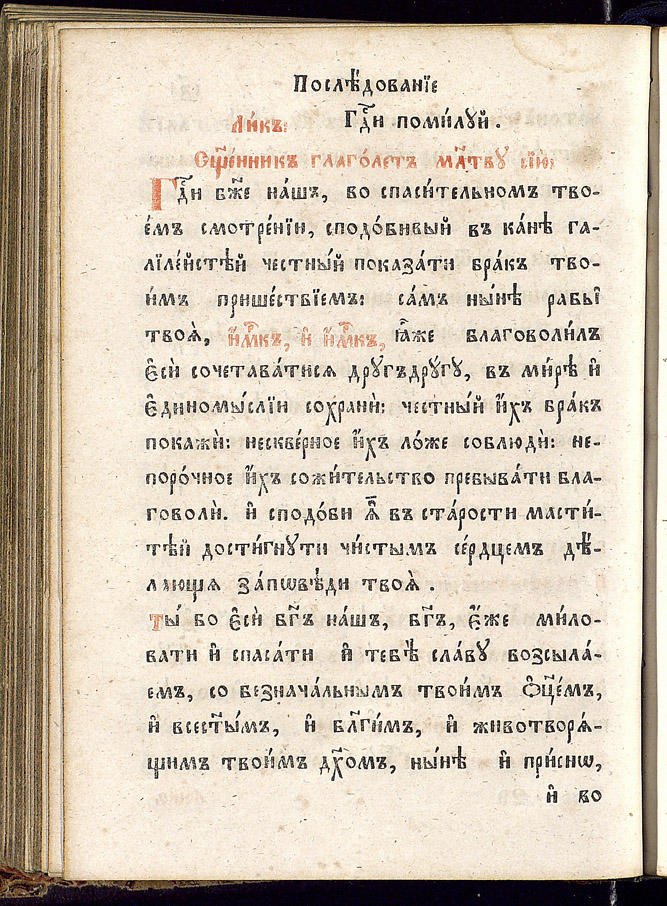 Послѣ́дованїе
Ли́къ: Гдⷭ҇и поми́лꙋй.
Сщ҃е́нникъ глаго́летъ мл҃твꙋ сїю̀:
Гдⷭ҇и бж҃е на́шъ, во спаси́тельномъ тво-
е́мъ смотре́нїи, сподо́бивый въ ка́нѣ га-
лїле́йстѣй честны́й показа́ти бра́къ тво-
и́мъ прише́ствїемъ: са́мъ ны́нѣ рабы̑
твоѧ̑, и҆́мⷬ҇къ, и҆ и҆́мⷬ҇къ, ꙗ҆̀же благоволи́лъ
є҆сѝ сочетава́тисѧ дрꙋ́гъдрꙋ́гꙋ, въ ми́рѣ и҆
є҆диномы́слїи сохранѝ: честны́й и҆́хъ бра́къ
покажѝ: нескве́рное и҆́хъ ло́же соблюдѝ: не-
поро́чное и҆́хъ сожи́тельство пребыва́ти бла-
говолѝ. и҆ сподо́би ѧ҆̀ въ ста́рости масти́-
тѣй дости́гнꙋти чи́стымъ се́рдцемъ дѣ́-
лающѧ за́пѡвѣди твоѧ̑.
ты́ бо є҆сѝ бг҃ъ на́шъ, бг҃ъ, є҆́же ми́ло-
вати и҆ спаса́ти и҆ тебѣ̀ сла́вꙋ возсыла́-
емъ, со безнача́льнымъ твои́мъ ѻ҆ц҃е́мъ,
и҆ всест҃ы́мъ, и҆ бл҃ги́мъ, и҆ животворѧ́-
щимъ твои́мъ дх҃омъ, ны́нѣ и҆ при́снѡ,
и҆ во